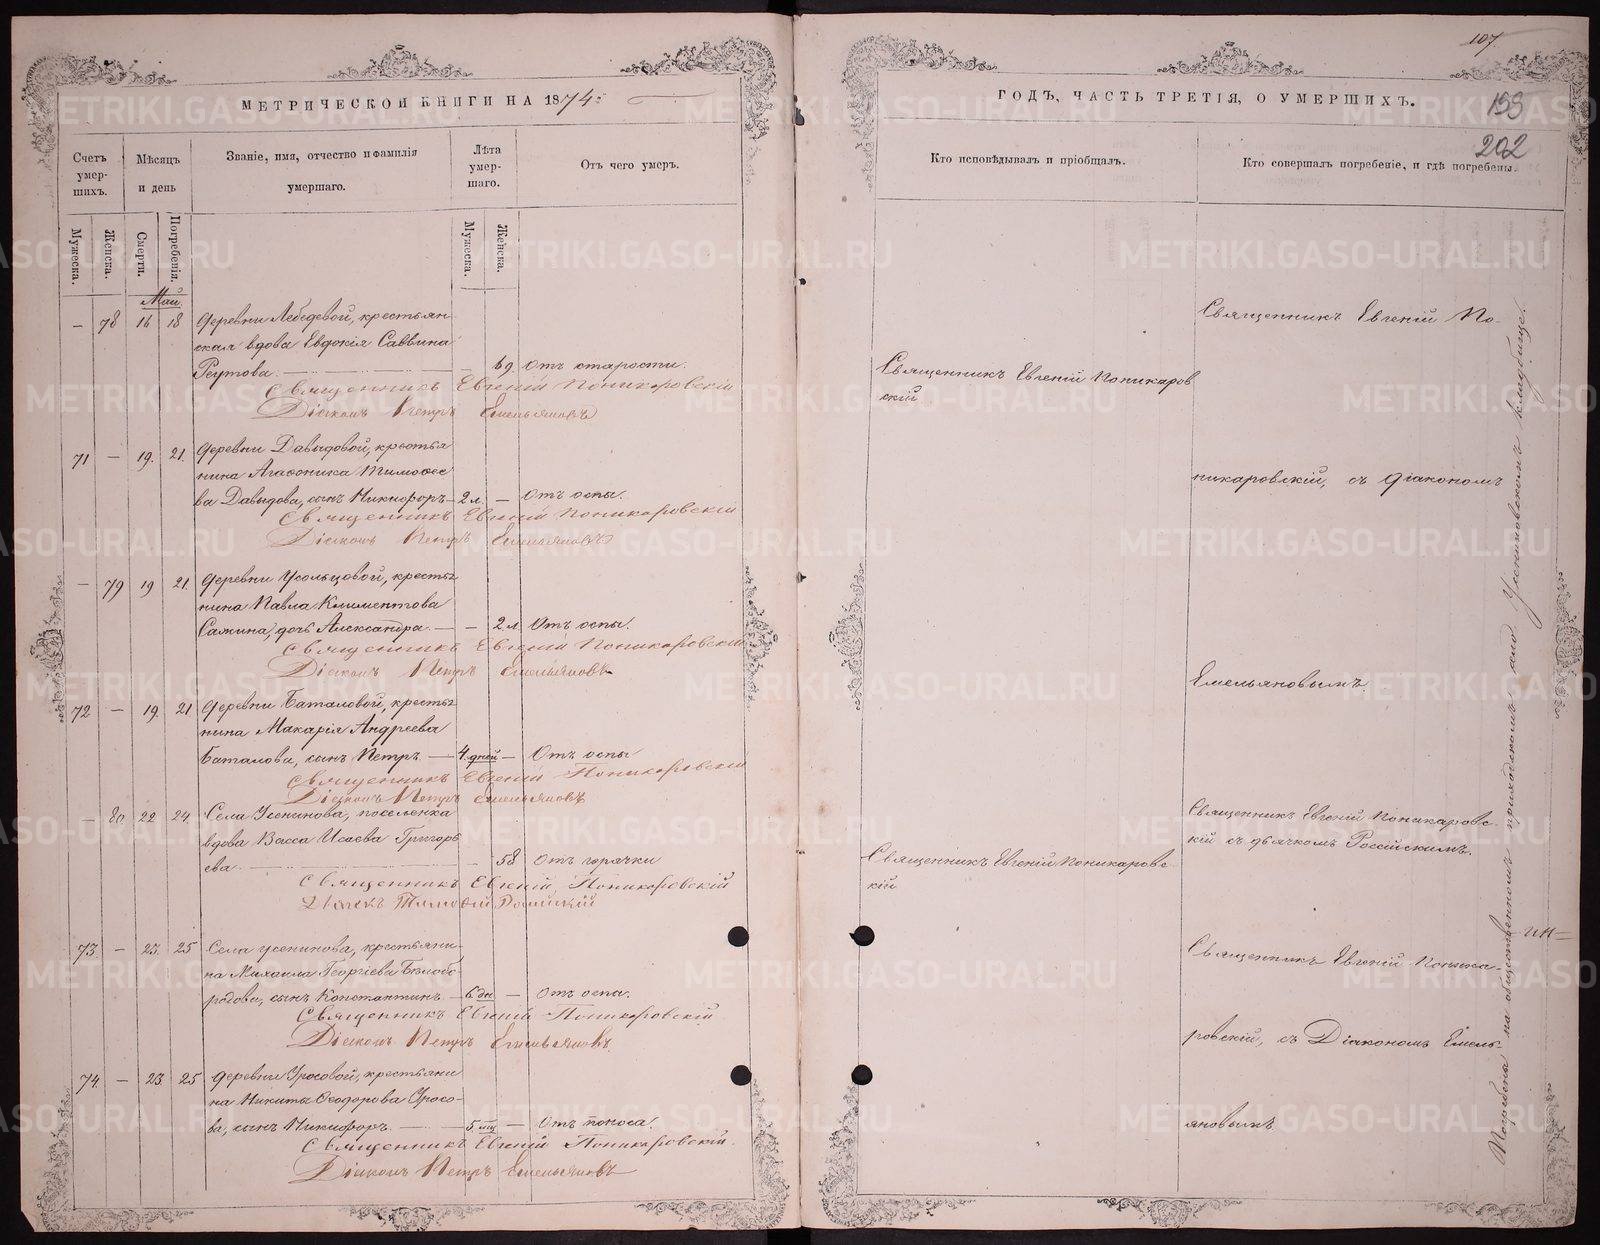 МЕТРИЧЕСКОЙ КНИГИ НА 1874
Счетъ умер-шихъ.
Мѣсяцъ и день
Званіе, имя, отчество и фамилія умершаго.
Лѣта умер-шаго.
Отъ чего умеръ.
Мужеска.
Женска.
Смерти.
Погребенія.
Мужеска.
Женска.
Май.
— 78 16 18 Деревни Лебедевой, крестьян-
ская вдова Евдокія Саввина
Реутова. 69 Отъ старости.
Священникъ Евгеній Поникаровскій
Діаконъ Петръ Емельяновъ
71 — 19. 21. Деревни Давыдовой, крестья
нина Агафоника Тимофее
ва Давыдова, сынъ Никифоръ — 2 л — Отъ оспы.
Священникъ Евгеній Поникаровскій
Діаконъ Петръ Емельяновъ
— 79 19 21. Деревни Усольцовой, кресть
нина Павла Климентова
Сажина, дочь Александра. — — 2 л Отъ оспы.
Священникъ Евгеній Поникаровскій
Діаконъ Петръ Емельяновъ
72 — 19. 21 Деревни Баталовой, кресть
нина Макарія Андреева
Баталова, сынъ Петръ — 4 дней — Отъ оспы
Священникъ Евгеній Поникаровскій
Діаконъ Петръ Емельяновъ
— 80 22 24 Села Усенинова, поселенка
вдова Васса Исаева Григорь
ева — 58 Отъ горячки
Священникъ Евгеній Поникаровскій
Тимофей
73. — 23. 25 Села Усенинова, крестьяни-
на Михаила Георгіева Бѣлобо-
родова, сынъ Константинъ — 6 дн — Отъ оспы.
Священникъ Евгеній Поникаровскій
Діаконъ Петръ Емельяновъ.
74. — 23 25 Деревни Уросовой, крестьяни
на Никиты Феодорова Уросо-
ва, сынъ Никифоръ. — 5 мц — Отъ поноса.
Священникъ Евгеній Поникаровскій.
Діаконъ Петръ Емельяновъ
107.
ГОДЪ, ЧАСТЬ ТРЕТІЯ, О УМЕРШИХЪ.
202
Кто исповѣдывалъ и пріобщалъ.
Кто совершалъ погребеніе, и гдѣ погребены.
Священникъ Евгеній Поникаров
скій
Священникъ Евгеній Поникаровс-
кій
Священникъ Евгеній По-
никаровскій, съ Діакономъ
Емельяновымъ.
Священникъ Евгеній Поникаровс-
кій съ дьячкомъ Россійскимъ.
Священникъ Евгеній Поника-
ровскій, съ Діакономъ Емель-
яновымъ
Погребены на общественномъ приходскомъ села Усениновскомъ кладбище.
METRIKI.GASO-URAL.RU